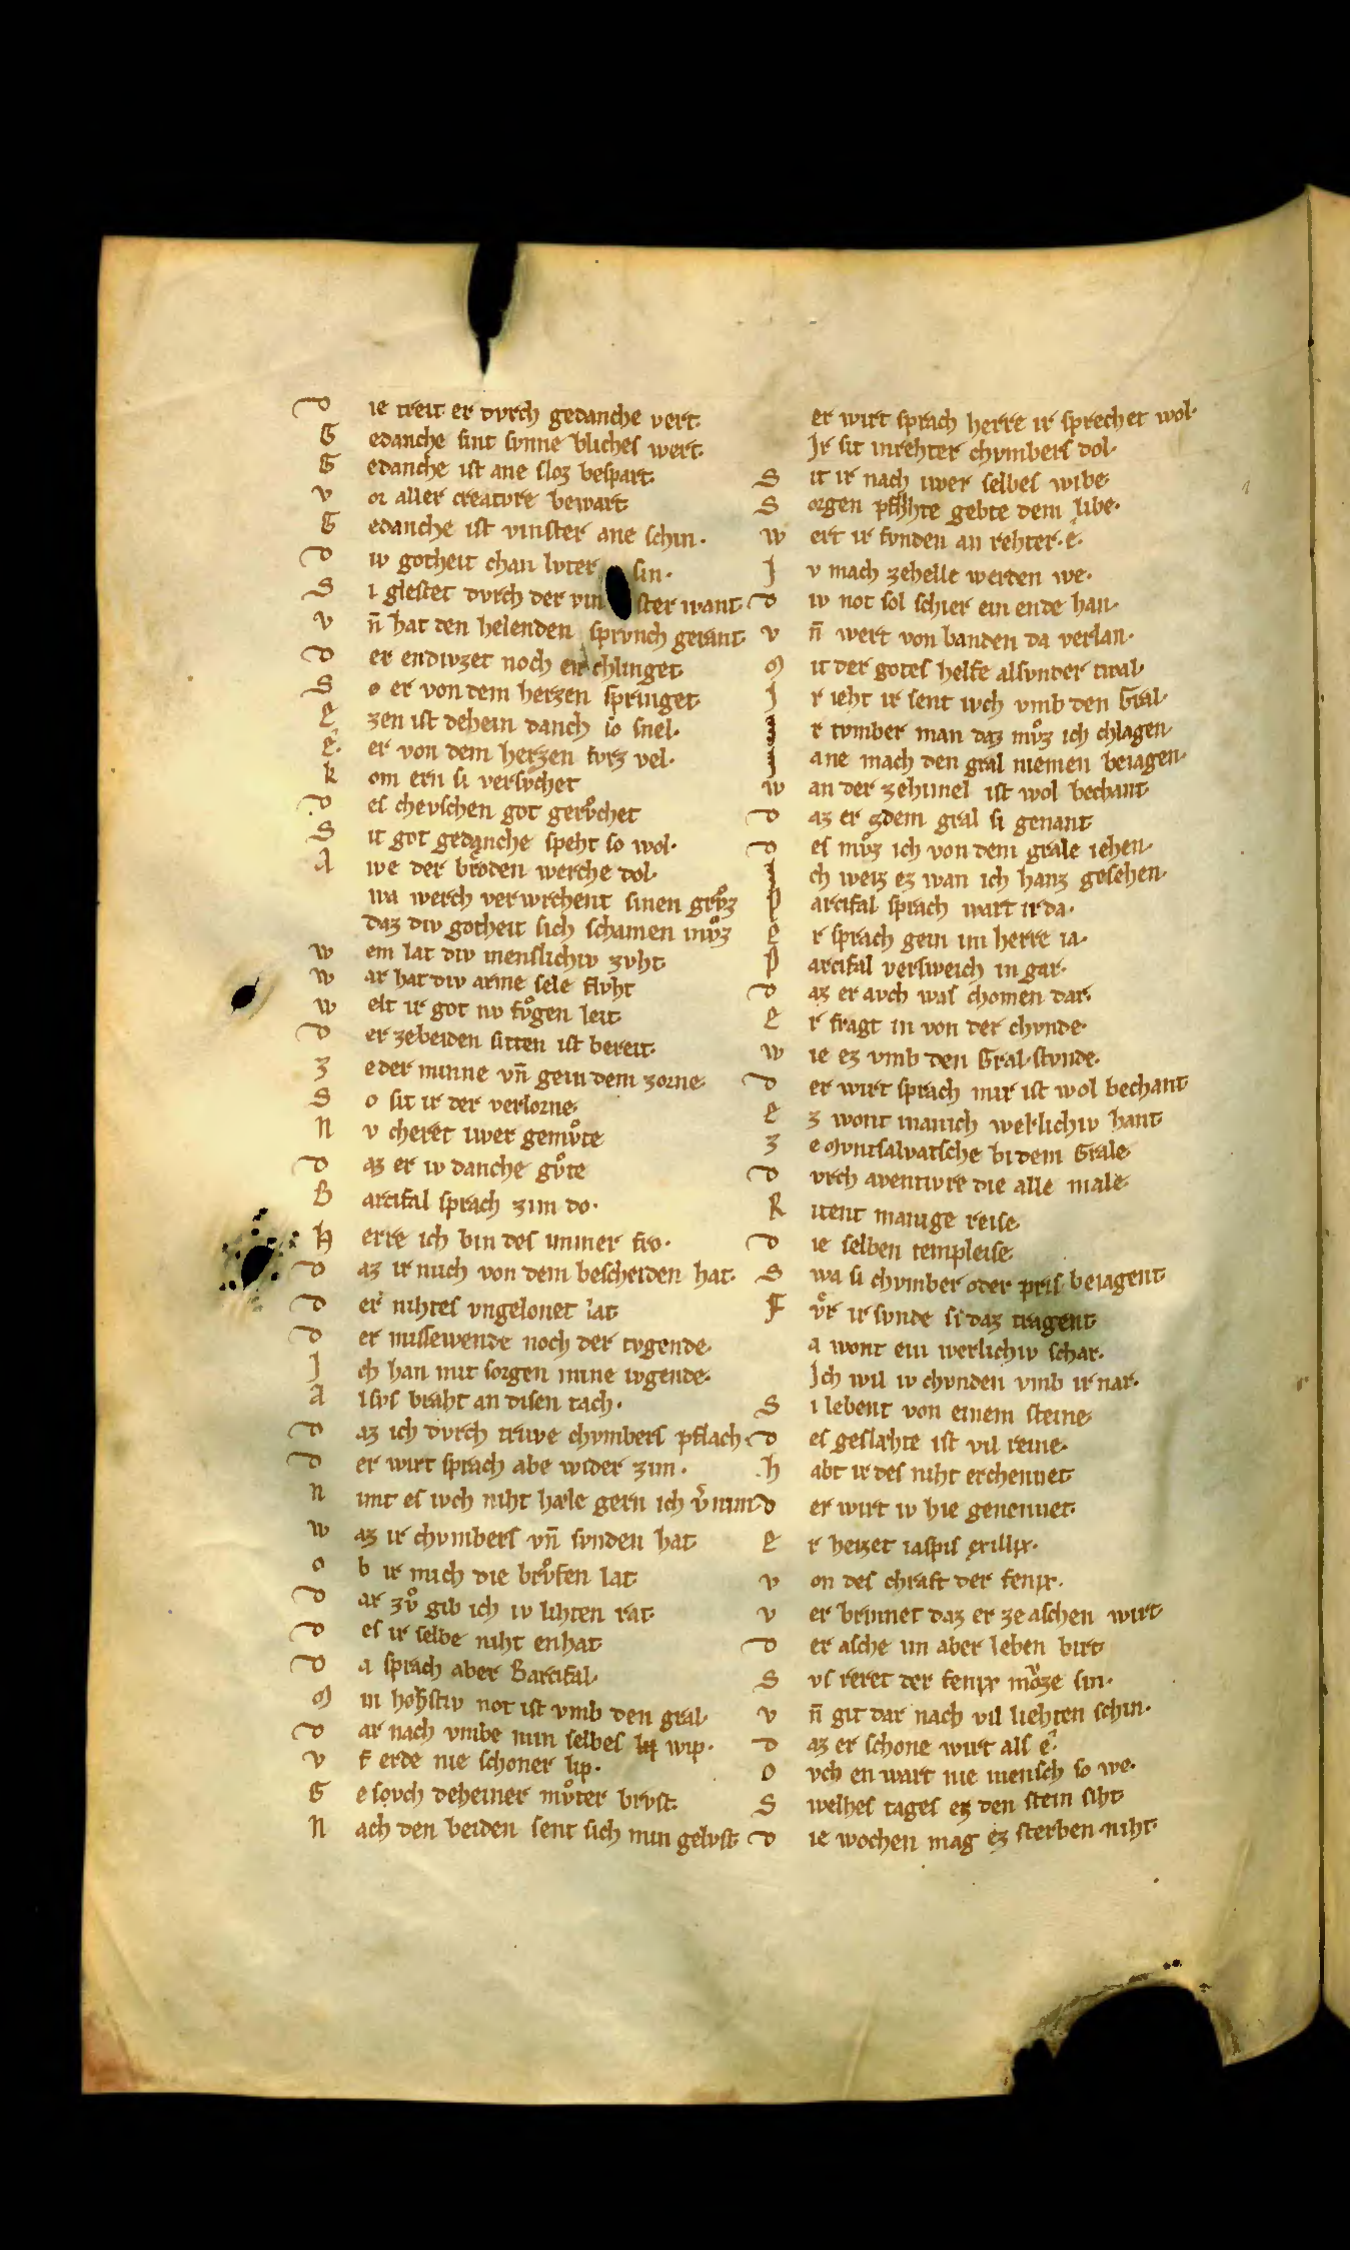 D ie treit er dvrch gedanche vert·
G edanche sint svnne bliches wert·
G edanche ist ane sloz bespart·
v or aller creatvre bewart·
G edanche ist vinster ane schin·
D iv gotheit chan lvter sin·
S i glestet dvrch der vinster want·
v n̄ hat den helenden sprvnch gerant·
D er endivzet noch enchlinget·
S o er von dem herzen springet·
E zen ist dehein danch so snel·
E· er von dem herzen fvrz vel·
K om ern si versv̊chet
D es chevschen got gerv̊chet
S it got gedanche speht so wol·
A we der brôden werche dol·
wa werch verwrchent sinen grv̊z
daz div gotheit sich schamen mv̊z
w em lat div menslichiv zvht·
w ar hat div arme sele flvht
w elt ir got nv fv̊gen leit·
D er zebeiden sitten ist bereit·
Z eder minne vn̄ gein dem zorne·
S o sit ir der verlorne·
N v cheret iwer gemv̊te
D az er iv danche gv̊te
B arcifal sprach zim do·
H erre ich bin des immer fro·
D az ir mich von dem bescheiden hat·
D er nihtes vngelonet lat·
D er missewende noch der tvgende·
J ch han mit sorgen mine ivgende·
A lsvs braht an disen tach·
D az ich dvrch triwe chvmbers pflach·
D er wirt sprach abe wider zim·
N imt es ivch niht hæle gern ich v̄nim
w az ir chvmbers vn̄ svnden hat·
O b ir mich die brv̊fen lat·
D ar zv̊ gib ich iv lihten rat·
D es ir selbe niht enhat·
D a sprach aber Barcifal·
M in hohstiv not ist vmb den gral·
D ar nach vmbe min selbes wip·
v f erde nie schoner lip·
G esovch deheiner mv̊ter brvst·
N ach den beiden sent sich min gelvst·
er wirt sprach herre ir sprechet wol·
Jr sit inrehter chvmbers dol·
S it ir nach iwer selbes wibe·
S orgen pflihte gebte dem libe·
w ert ir fvnden an rehter·e·
J v mach zehelle werden we·
D iv not sol schier ein ende han·
v n̄ wert von banden da verlan·
M it der gotes helfe alsvnder twal·
J r ieht ir sent ivch vmb den Gral·
J r tvmber man daz mv̊z ich chlagen·
J ane mach den gral niemen beiagen·
w an der zehimel ist wol bechant·
D az er zdem gral si genant
D es mv̊z ich von dem grale iehen·
J ch weiz ez wan ich hanz gesehen·
P arcifal sprach wart ir da·
E r sprach gein im herre ia·
P arcifal versweich in gar·
D az er avch was chomen dar·
E r fragt in von der chvnde·
w ie ez vmb den Gral stvnde·
D er wirt sprach mir ist wol bechant·
E z wont manich werlichiv hant·
Z e Mvntsalvatsche bi dem Grale·
D vrch aventivre die alle male·
R itent manige reise·
D ie selben templeise·
S wa si chvmber oder pris beiagent·
F v̊r ir svnde si daz tragent·
a wont ein werlichiv schar·
Jch wil iv chvnden vmb ir nar·
S i lebent von einem steine·
D es geslæhte ist vil reine·
h abt ir des niht erchennet·
D er wirt iv hie genennet·
E r heizet iaspis exillix·
v on des chraft der fenix·
v er brinnet daz er ze aschen wirt·
D er asche im aber leben birt·
S vs reret der fenix mv̊ze sin·
v n̄ git dar nach vil liehten schin·
D az er schone wirt als e·
O vch en wart nie mensch so we·
S welhes tages ez den stein siht·
D ie wochen mag ez sterben niht·